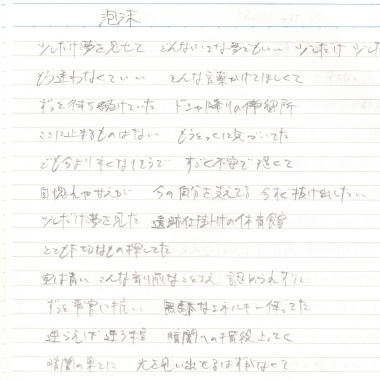 泡沫
少しだけ夢を見せて どんないつな夢でもいい 少しだけ 少し
もう迷わなくていい そんな言葉かけてほしくて
ずっと待ち続けていた ドシャ降りの停留所
ここに止まるものはない もうとっくに気づいてた
どうもより なくなりそうで すごく不安で 怖くて
自惚れや甘えが 今の自分を支えてる 今すぐ抜け出したい
少しだけ夢を見た 仕掛けの体育館
とても大切なもの 探してた
空は青い こんな当り前なことさえ 認められずに
ずっと常に抗い 無駄なエネルギー使ってた
逆らえば逆う程 暗闇への階段上ってく
暗闇の果てに 光を見い出せるはずなくて